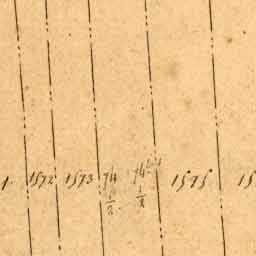 1572 1573 74 74 1575 15
1/2 1/2